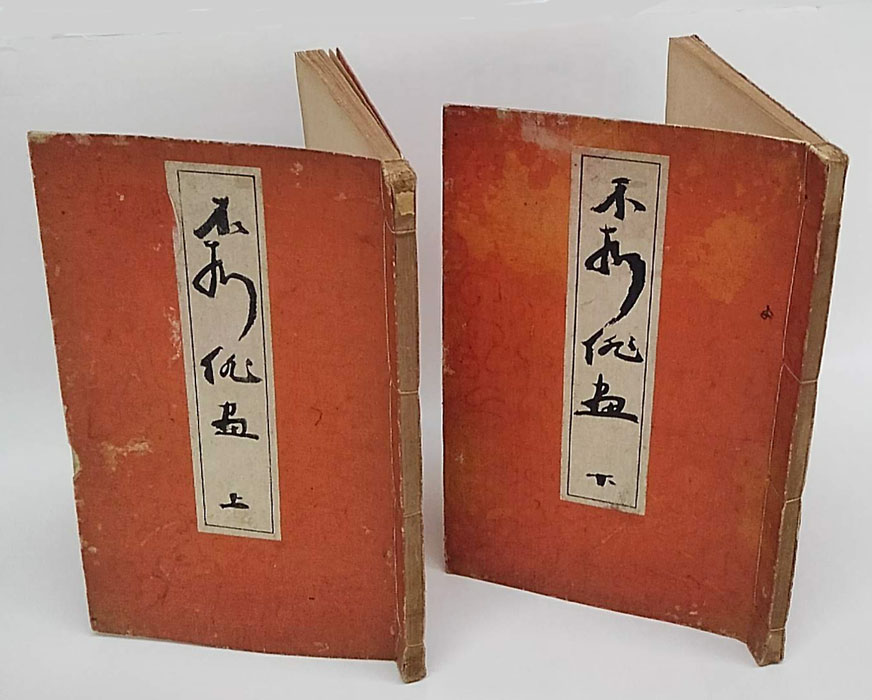 不折俳画 上
不折俳画 下